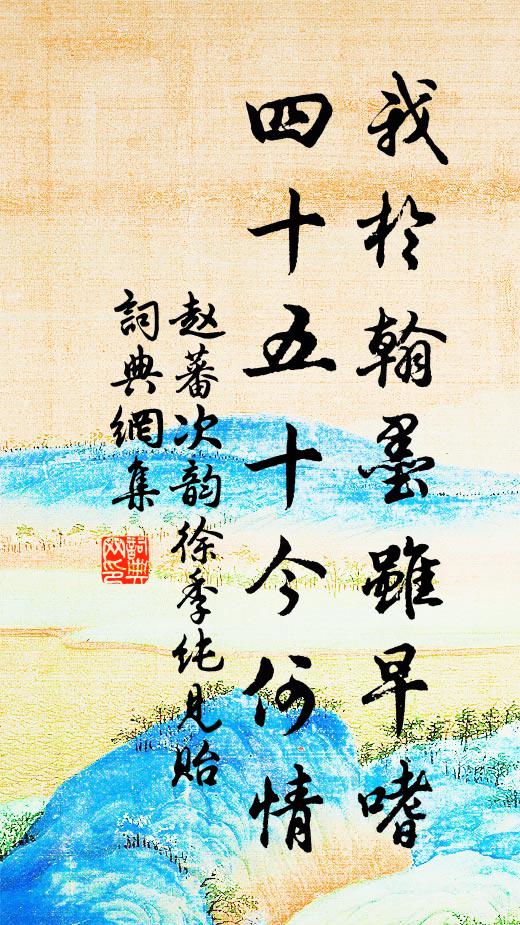 我於翰墨雖早嗜
四十五十今何情
赵蕃次韵徐季纯见贻
詞典網集